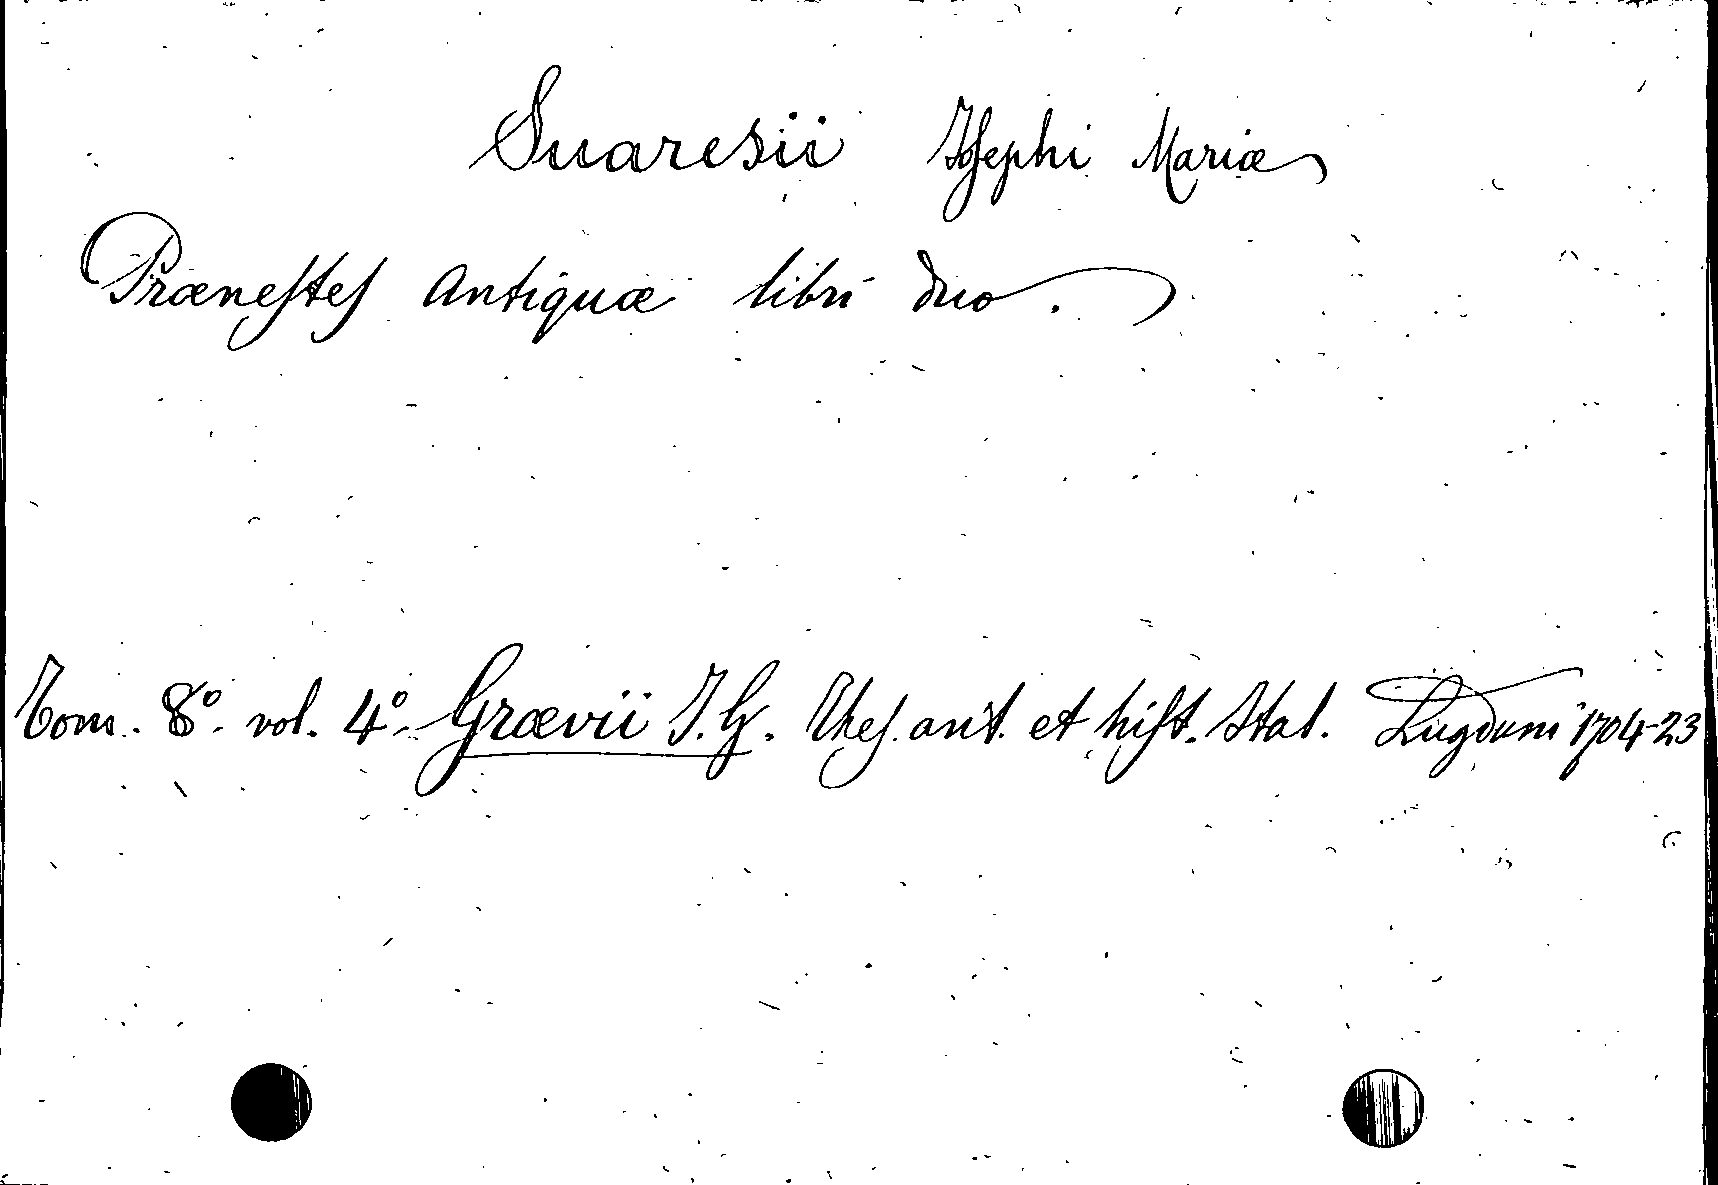 Suaresii Josephi Mariæ
Prænestes Antiquæ libri duo.
Tom. 8º. vol. 4º. Grævii J. G. Thes. ant. et hist. Ital. Lugduni 1704-23